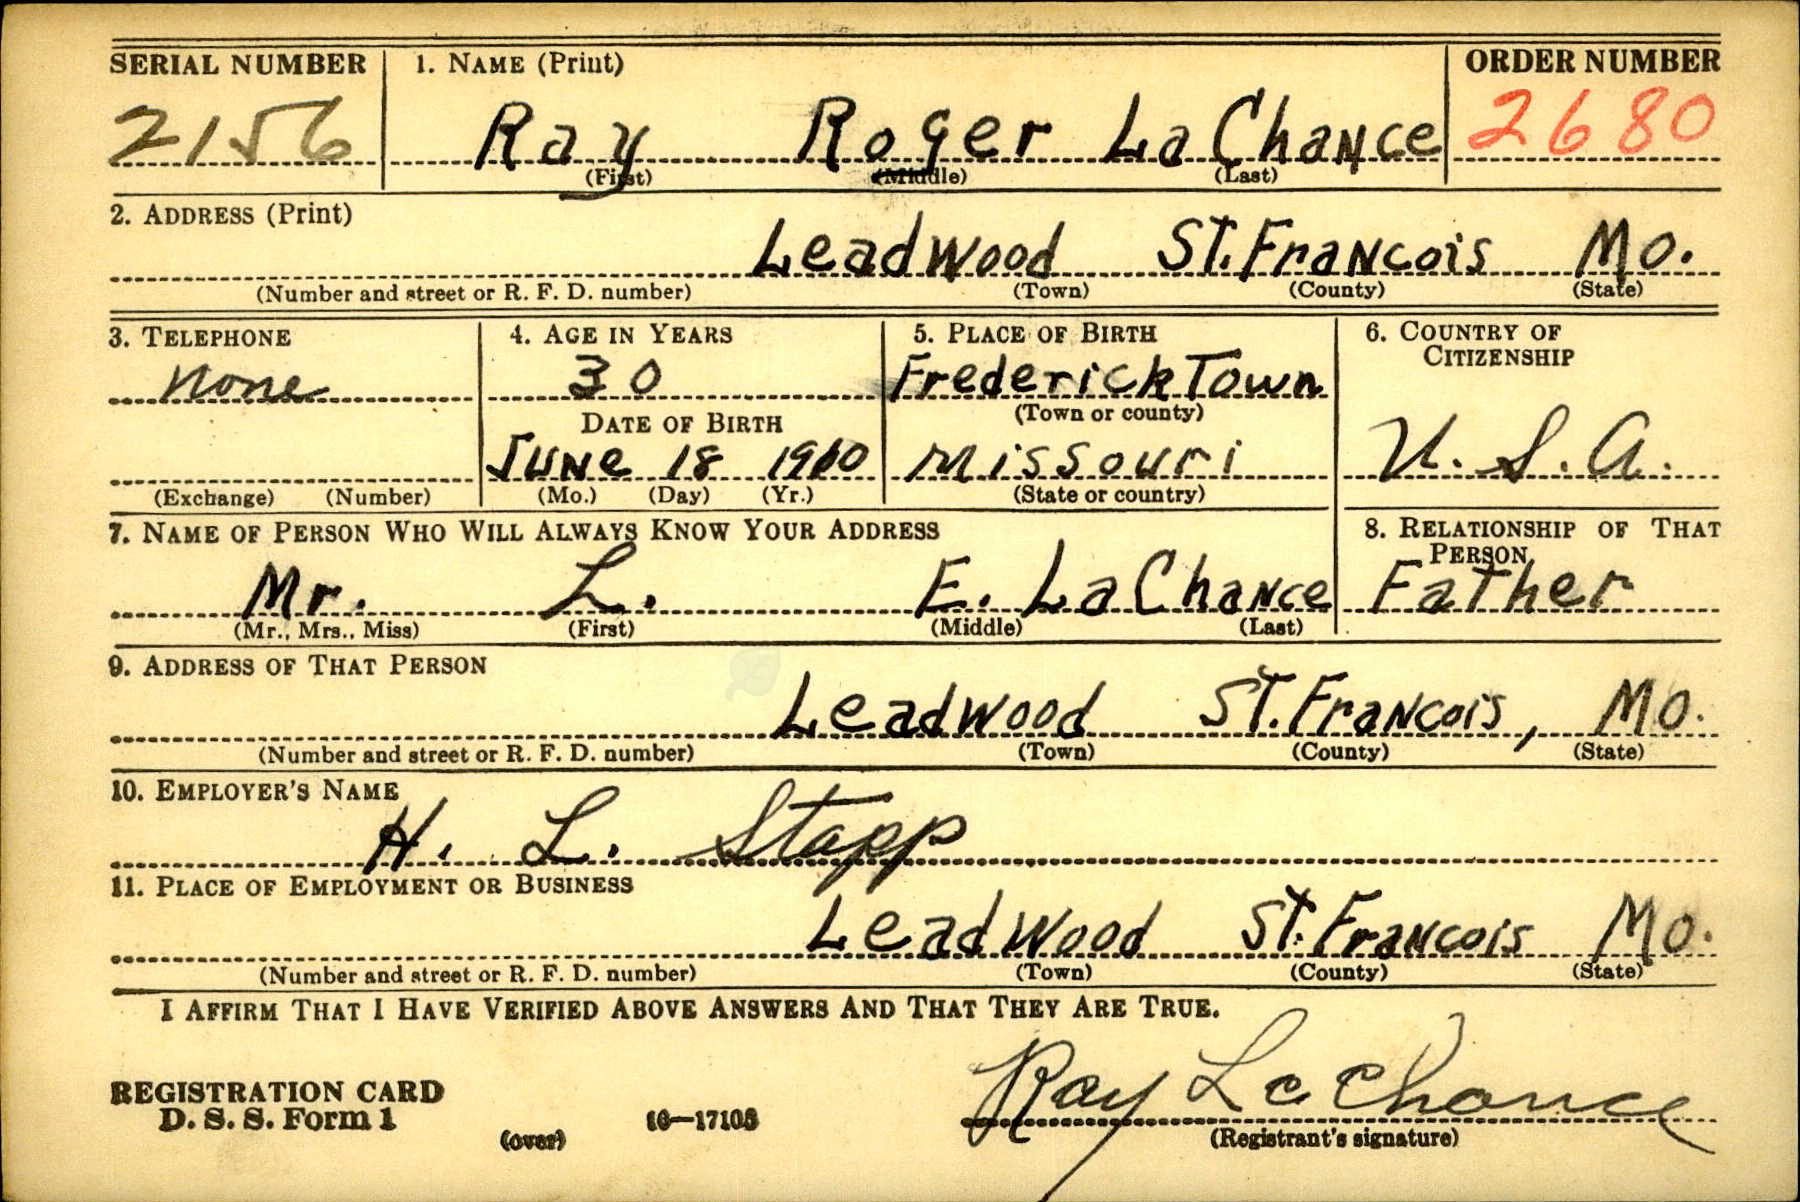 SERIAL NUMBER 1. NAME (Print) ORDER NUMBER
2156 Ray Roger LaChance 2680
(First) (Middle) (Last)
2. ADDRESS (Print)
Leadwood St. Francois Mo.
(Number and street or R. F. D. number) (Town) (County) (State)
3. TELEPHONE 4. AGE IN YEARS 5. PLACE OF BIRTH 6. COUNTRY OF CITIZENSHIP
none 30 FrederickTown
DATE OF BIRTH (Town or county)
June 18 1910 Missouri U. S. A.
(Exchange) (Number) (Mo.) (Day) (Yr.) (State or country)
7. NAME OF PERSON WHO WILL ALWAYS KNOW YOUR ADDRESS 8. RELATIONSHIP OF THAT PERSON
Mr. L. E. LaChance Father
(Mr., Mrs., Miss) (First) (Middle) (Last)
9. ADDRESS OF THAT PERSON
Leadwood St. Francois, Mo.
(Number and street or R. F. D. number) (Town) (County) (State)
10. EMPLOYER'S NAME
H. L. Stapp
11. PLACE OF EMPLOYMENT OR BUSINESS
Leadwood St. Francois Mo.
(Number and street or R. F. D. number) (Town) (County) (State)
I AFFIRM THAT I HAVE VERIFIED ABOVE ANSWERS AND THAT THEY ARE TRUE.
Ray LaChance
REGISTRATION CARD
D. S. S. Form 1
(over) 16—17105 (Registrant's signature)